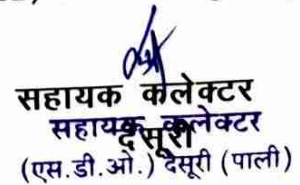 सहायक कलेक्टर
देसूरी
सहायक कलेक्टर
(एस.डी.ओ.) देसूरी (पाली)